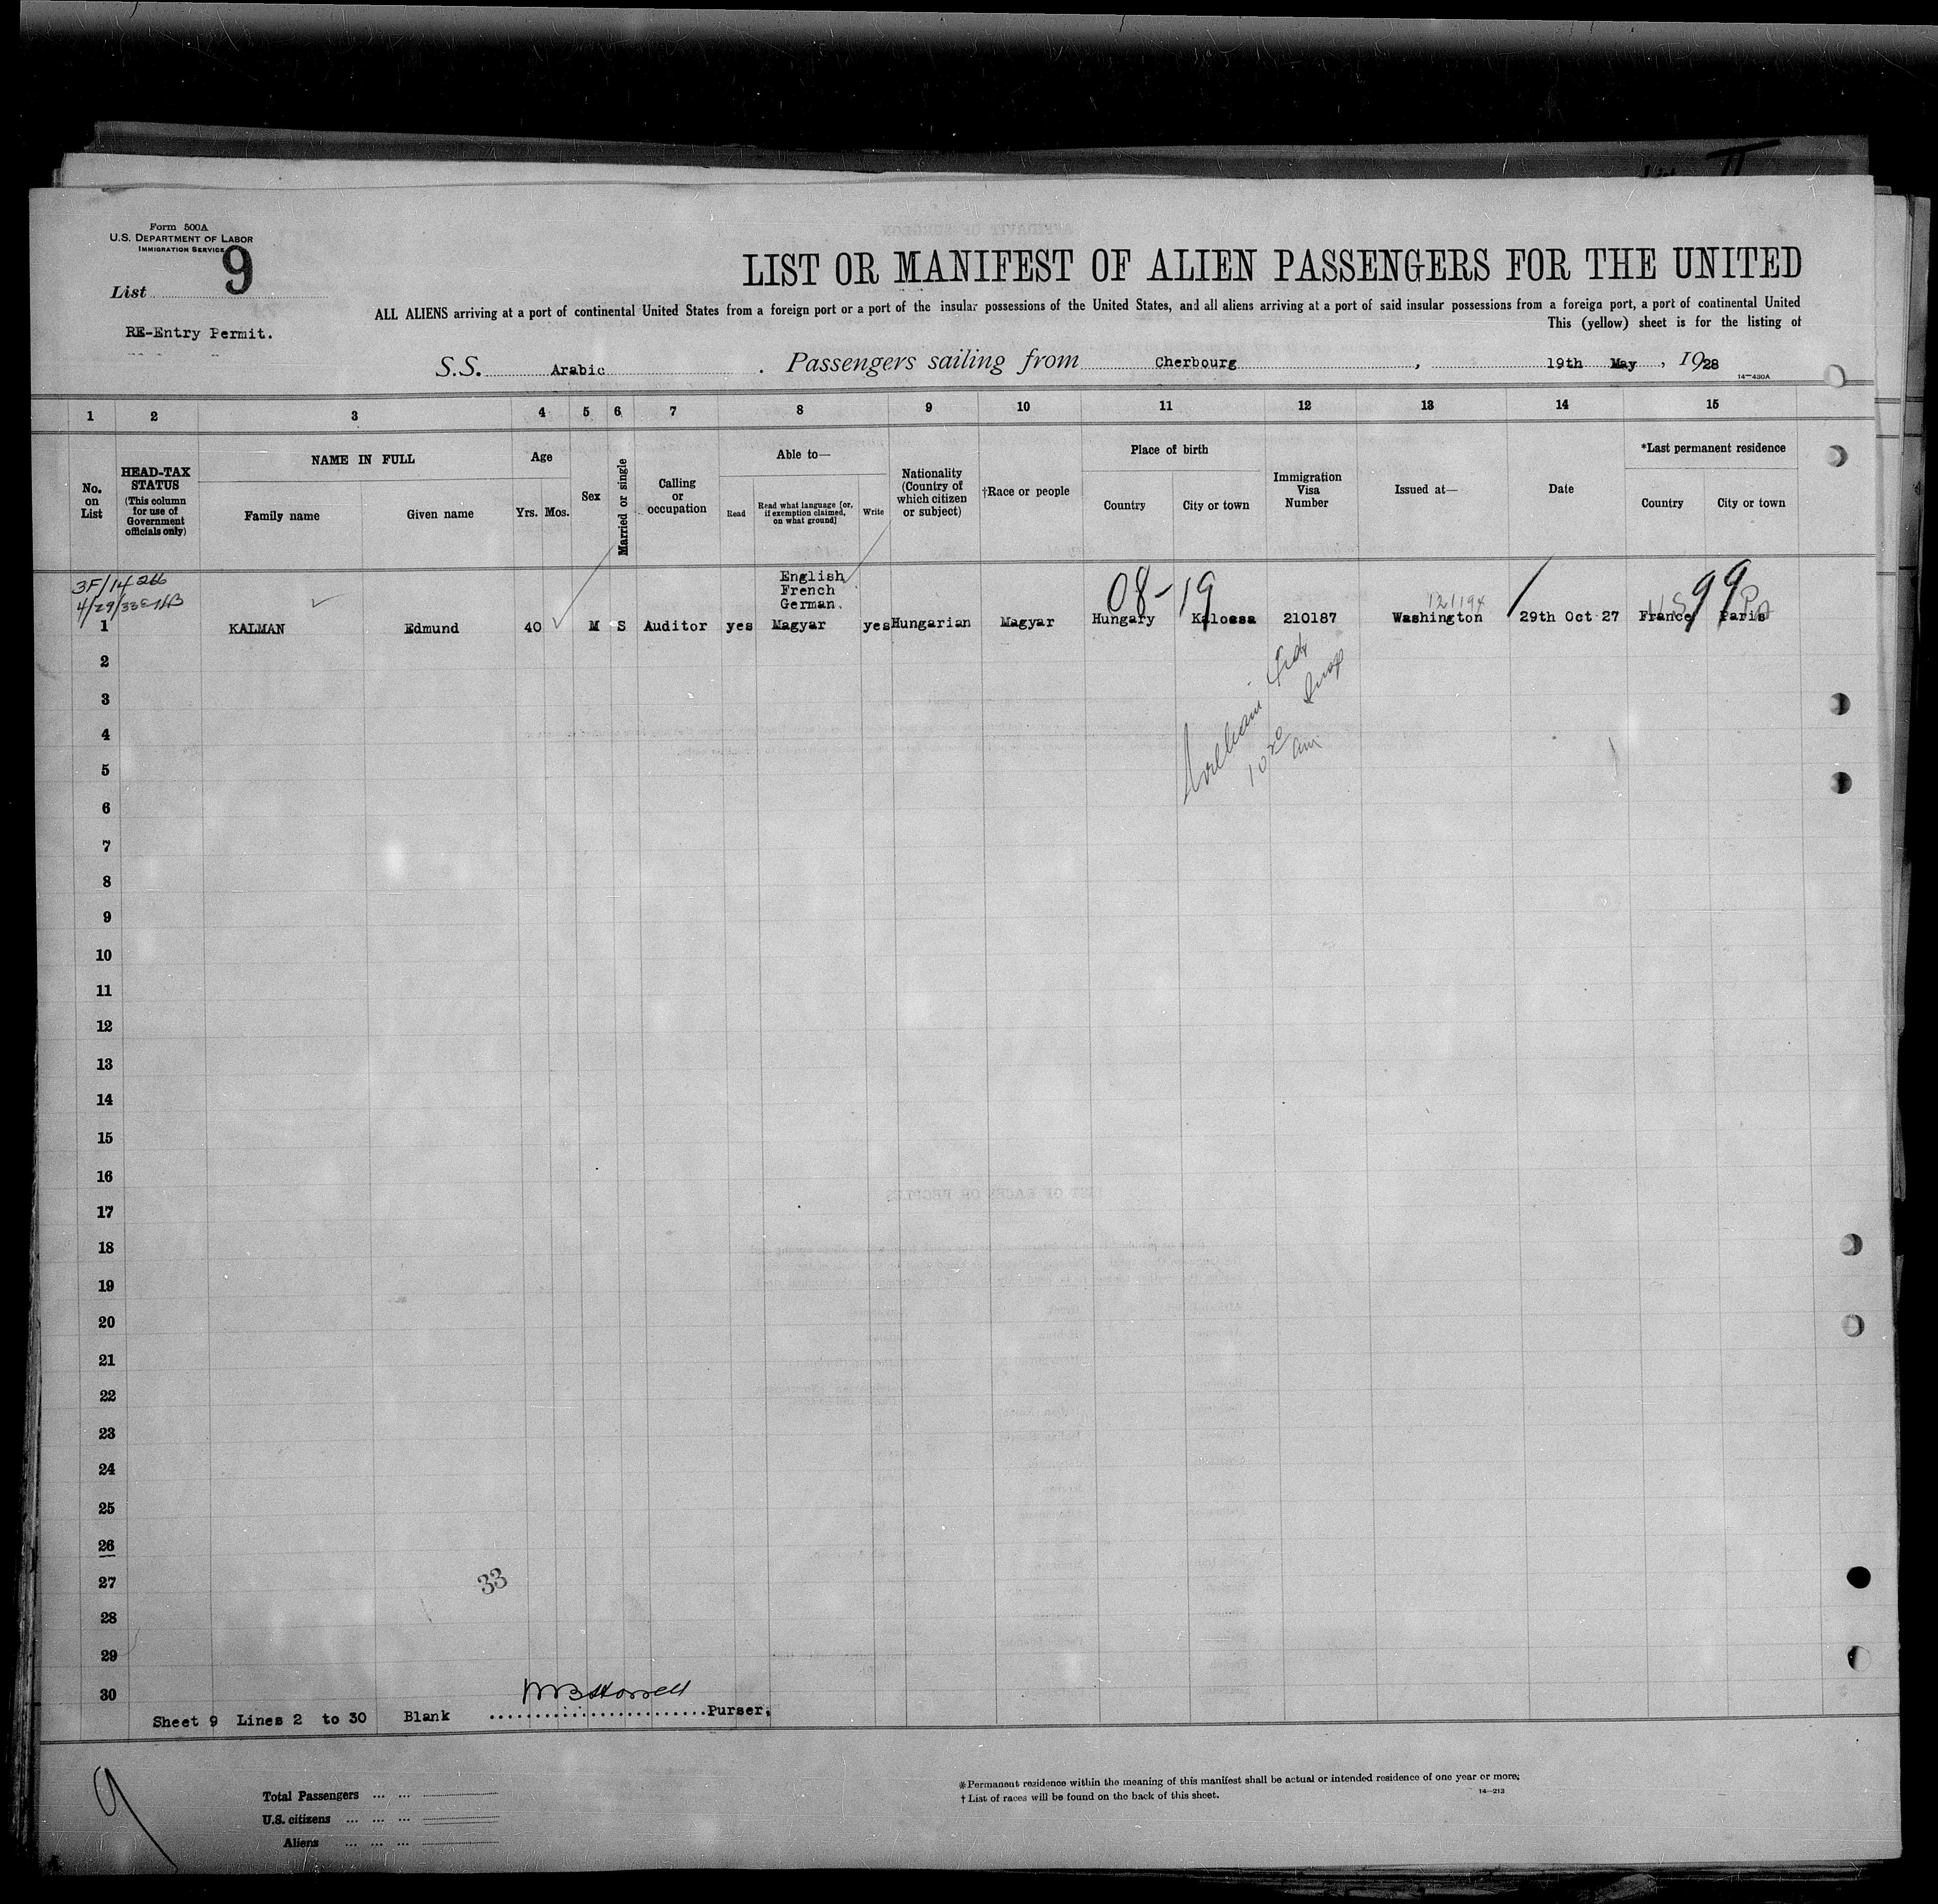 Form 500A
U.S. DEPARTMENT OF LABOR
IMMIGRATION SERVICE
9
List
RE-Entry Permit.
LIST OR MANIFEST OF ALIEN PASSENGERS FOR THE UNITED
ALL ALIENS arriving at a port of continental United States from a foreign port or a port of the insular possessions of the United States, and all aliens arriving at a port of said insular possessions from a foreign port, a port of continental United
This (yellow) sheet is for the listing of
S.S. Arabic . Passengers sailing from Cherbourg , 19th May , 1928
14—430A
1 2 3 4 5 6 7 8 9 10 11 12 13 14 15
No. on List
HEAD-TAX STATUS (This column for use of Government officials only)
NAME IN FULL
Family name Given name
Age
Yrs. Mos.
Sex
Married or single
Calling or occupation
Able to—
Read
Read what language [or, if exemption claimed, on what ground]
Write
Nationality (Country of which citizen or subject)
†Race or people
Place of birth
Country City or town
Immigration Visa Number
Issued at—
Date
*Last permanent residence
Country City or town
3F/14266
4/29/33
English
French
German.
08-19
121194
99
1 KALMAN Edmund 40 M S Auditor yes Magyar yes Hungarian Magyar Hungary Kalossa 210187 Washington 29th Oct 27 France Paris
US Pa
2
3
4
5
10 30 am
6
7
8
9
10
11
12
13
14
15
16
17
18
19
20
21
22
23
24
25
26
27
33
28
29
30
Sheet 9 Lines 2 to 30 Blank Purser.
9
Total Passengers ... ...
U.S. citizens ... ... ...
Aliens ... ... ...
*Permanent residence within the meaning of this manifest shall be actual or intended residence of one year or more.
† List of races will be found on the back of this sheet.
14—213